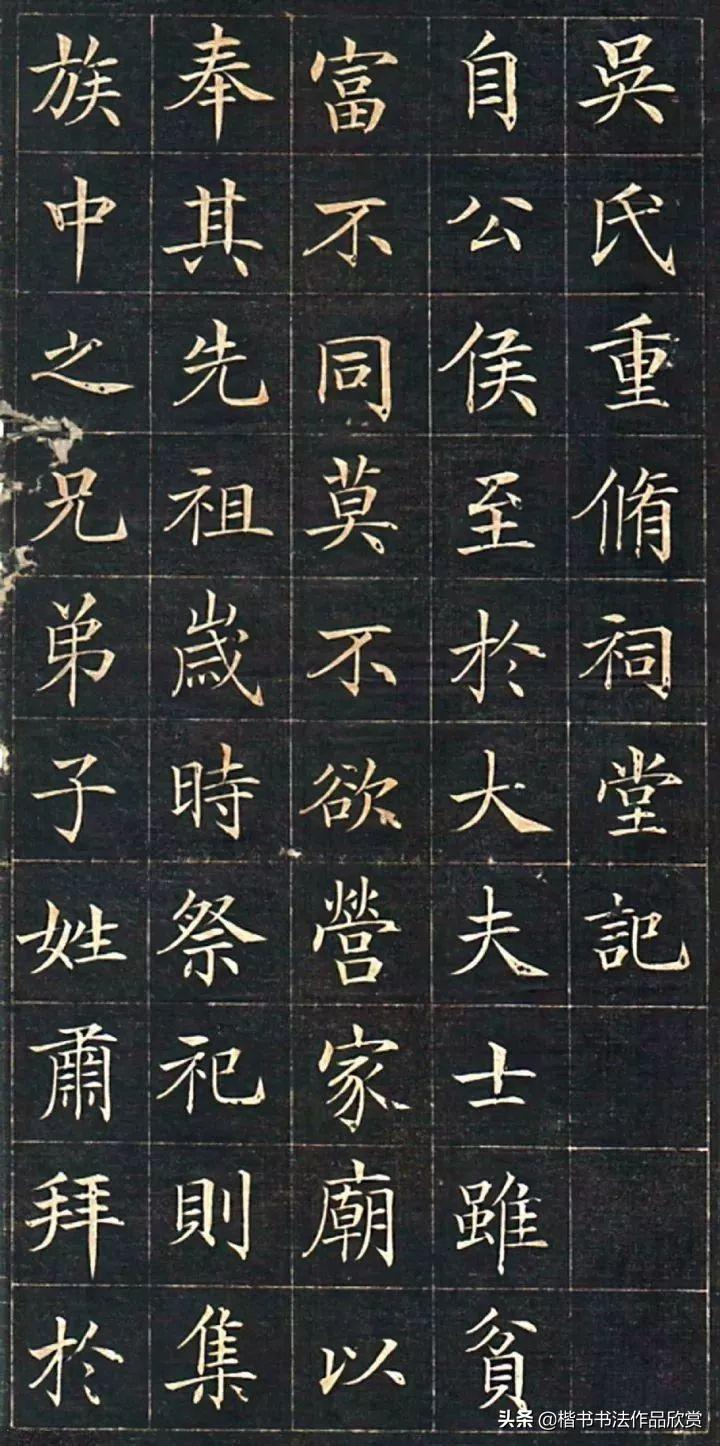 吳氏重脩祠堂記
自公侯至於大夫士雖貧
富不同莫不欲營家廟以
奉其先祖歲時祭祀則集
族中之兄弟子姓肅拜於
头条 @楷书书法作品欣赏